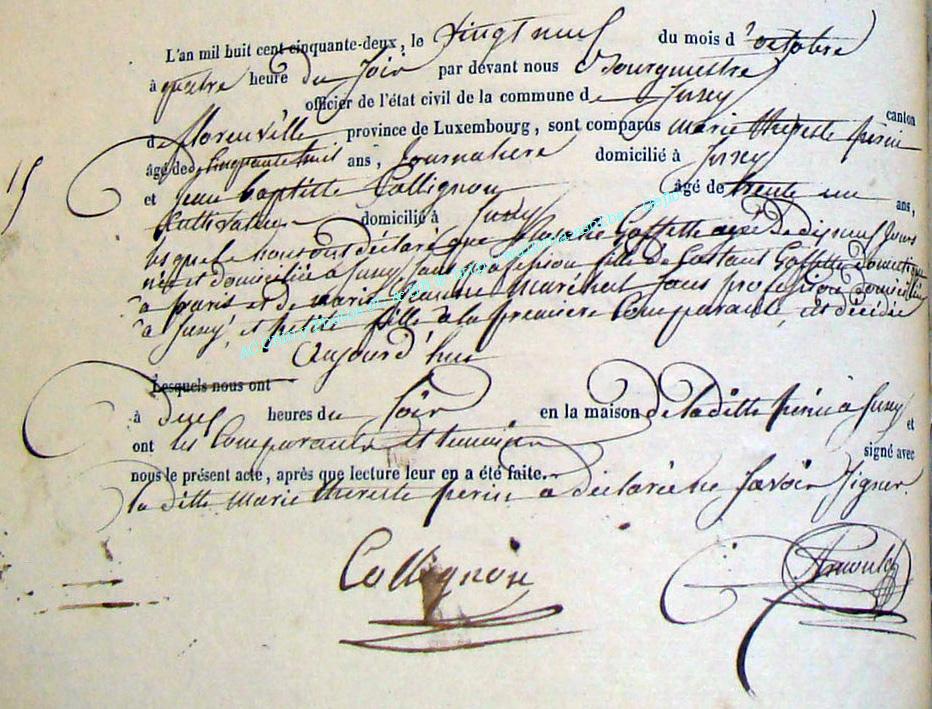 L'an mil huit cent cinquante-deux, le vingt neuf du mois d'octobre
à quatre heure du soir par devant nous Bourgmestre
officier de l'état civil de la commune de Jusey
canton
de florenville province de Luxembourg, sont comparus marie thereste perin
15
âgé de cinquante huit ans, Journaliere domicilié à Jusey
et jean baptiste Collignon âgé de trente un ans,
Cultivateur domicilié à Jusey
les quel nous ont déclaré que Goffette agée De dix neuf Jours
née et domiciliée a Jusey sans profession fille de Goffette domestique
à paris et de marie maréchal sans profession domiciliée
à Jusey, et petite fille à la premiere Comparante, est décédée
aujourd'hui
Lesquels nous ont
à deux heures du soir en la maison de la ditte perin a Jusey et
ont les Comparants et temoins signé avec
nous le présent acte, après que lecture leur en a été faite.
la ditte marie thereste perin a déclaré ne savoir signer.
Collignon
Arnould